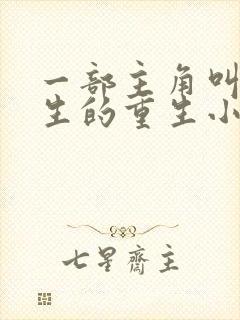 一部主角叫
生的重生小
七星斋主